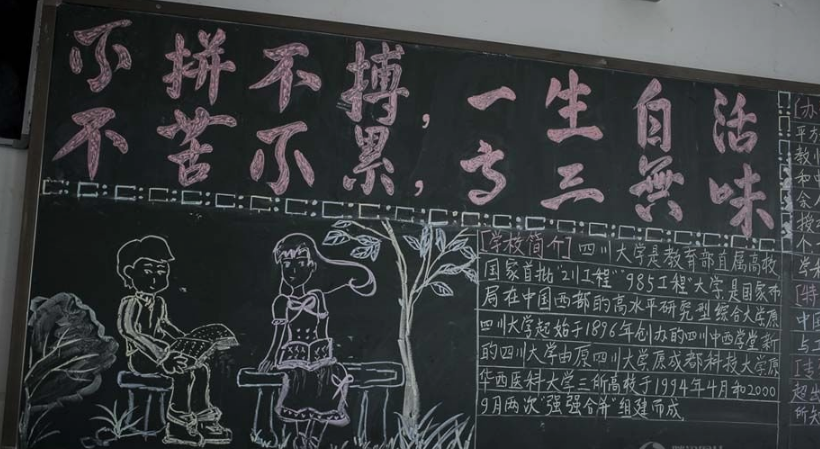 不拼不搏,一生白活
不苦不累,高三無味
[学校简介]四川大学是教育部直属高校
国家首批"211工程""985工程"大学是国家布
局在中国西部的高水平研究型综合大学原
四川大学起始于1896年创办的四川中西学堂新
的四川大学由原四川大学原成都科技大学原
华西医科大学三所高校于1994年4月和2000
9月两次"强强合併"组建而成
[办
平方
教
和中
学科
[特
中国
与工
超出
所知